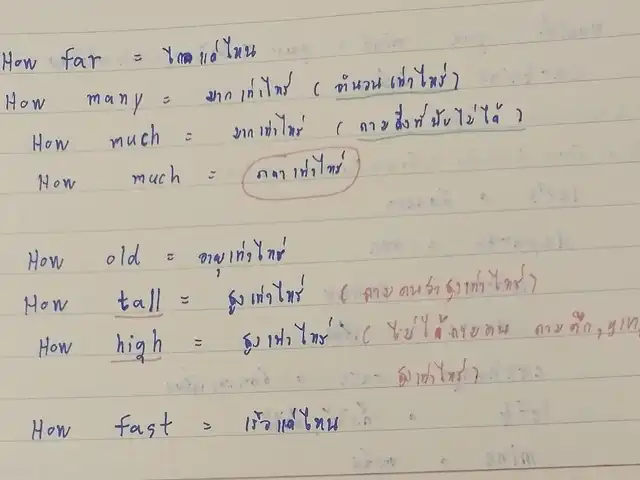 How far = ไกลแค่ไหน
How many = มากเท่าไหร่ (จำนวนเท่าไหร่)
How much = มากเท่าไหร่ (ถามสิ่งที่นับไม่ได้)
How much = ราคาเท่าไหร่
How old = อายุเท่าไหร่
How tall = สูงเท่าไหร่ (ถามคนว่าสูงเท่าไหร่)
How high = สูงเท่าไหร่ (ไม่ได้ถามคน ถามตึก,
สูงเท่าไหร่)
How fast = เร็วแค่ไหน